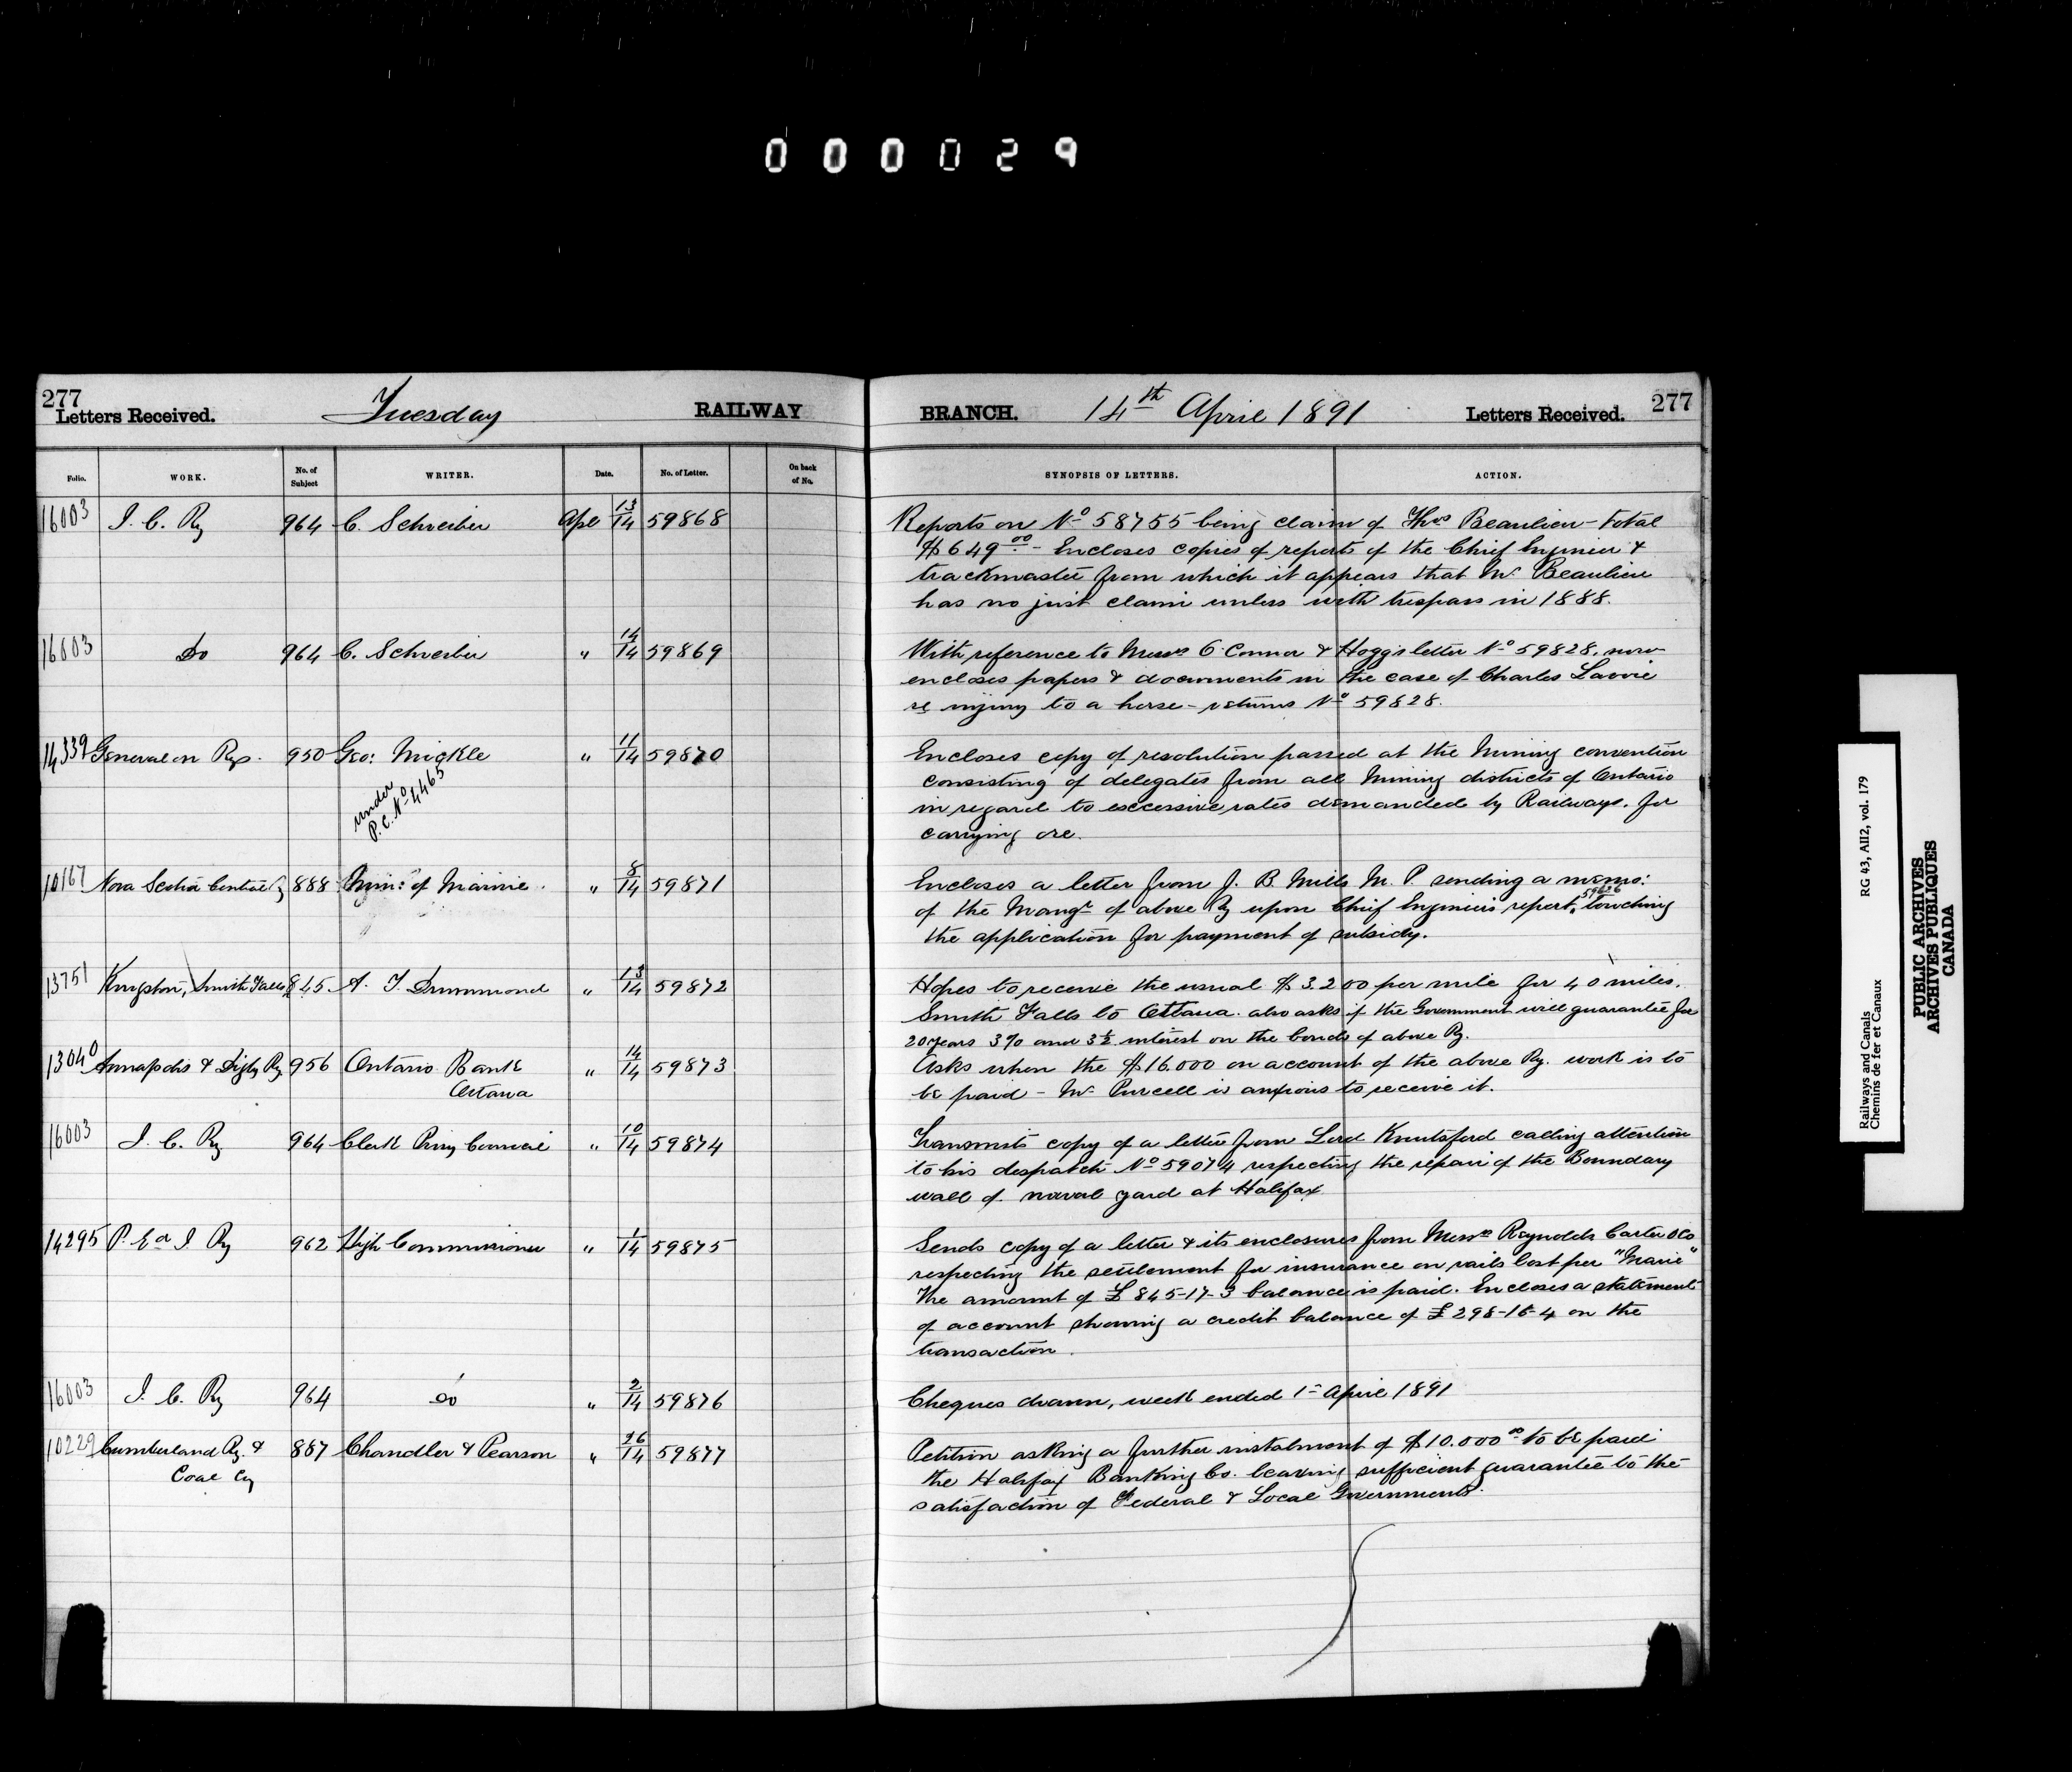 000029
277 Letters Received. Tuesday RAILWAY BRANCH. 14th April 1891 Letters Received. 277
Folio. WORK. No. of Subject WRITER. Date. No. of Letter. On back of No. SYNOPSIS OF LETTERS. ACTION.
16003 I. C. Ry 964 C. Schreiber Apl 13/14 59868 Reports on No 58755 being claim of Thos Beaulieu - total
$649.00 - Encloses copies of reports of the Chief Engineer &
trackmaster from which it appears that Mr Beaulieu
has no just claim unless with trespass in 1888.
16003 Do 964 C. Schreiber " 14/14 59869 With reference to Messrs O'Connor & Hogg's letter No 59828, now
encloses papers & documents in the case of Charles Lavoie
re injury to a horse - returns No 59828.
14339 General on Rys. 950 Geo: Mickle " 11/14 59870 Encloses copy of resolution passed at the Mining convention
under P.C. No 4465
consisting of delegates from all Mining districts of Ontario
in regard to excessive rates demanded by Railways. for
carrying ore.
10167 Nova Scotia Central Ry 888 Min: of Marine. " 8/14 59871 Encloses a letter from J. B. Mills M. P. sending a memo:
of the Mangr of above Ry upon Chief Engineer's report, 59626 touching
the application for payment of subsidy.
13751 Kingston, Smith Falls 845 A. T. Drummond " 13/14 59872 Hopes to receive the usual $3.200 per mile for 40 miles.
Smith Falls to Ottawa. also asks if the Government will guarantee for
20 years 3% and 3½ interest on the bonds of above Ry.
13040 Annapolis & Digby Ry 956 Ontario Bank Ottawa " 14/14 59873 Asks when the $16.000 on account of the above Ry. work is to
be paid - Mr Purcell is anxious to receive it.
16003 I. C. Ry 964 Clerk Privy Council " 10/14 59874 Transmits copy of a letter from Lord Knutsford calling attention
to his despatch No 59074 respecting the repair of the Boundary
wall of naval yard at Halifax
14295 P. Ed I. Ry 962 High Commissioner " 1/14 59875 Sends copy of a letter & its enclosures from Messrs Reynolds Carter & Co
respecting the settlement for insurance on rails lost per "Marie"
The amount of £845-17-3 balance is paid. Encloses a statement
of account showing a credit balance of £298-16-4 on the
transaction.
16003 I. C. Ry 964 do " 2/14 59876 Cheques drawn, week ended 1st April 1891
10229 Cumberland Ry. & Coal Cy 887 Chandler & Pearson " 14 59877 Petition asking a further instalment of $10.000.00 to be paid
the Halifax Banking Co. leaving sufficient guarantee to the
satisfaction of Federal & Local Governments.
Railways and Canals RG 43, AII2, vol. 179
Chemins de fer et Canaux
PUBLIC ARCHIVES
ARCHIVES PUBLIQUES
CANADA